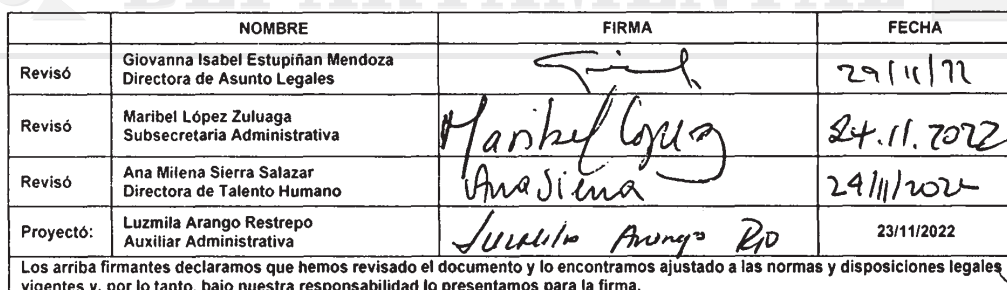 NOMBRE FIRMA FECHA
Revisó Giovanna Isabel Estupiñan Mendoza
Directora de Asunto Legales 29/11/22
Revisó Maribel López Zuluaga
Subsecretaria Administrativa Maribel López 24.11.2022
Revisó Ana Milena Sierra Salazar
Directora de Talento Humano Ana Sierra 24/11/2022
Proyectó: Luzmila Arango Restrepo
Auxiliar Administrativa Luzmila Arango 23/11/2022
Los arriba firmantes declaramos que hemos revisado el documento y lo encontramos ajustado a las normas y disposiciones legales
vigentes y, por lo tanto, bajo nuestra responsabilidad lo presentamos para la firma.